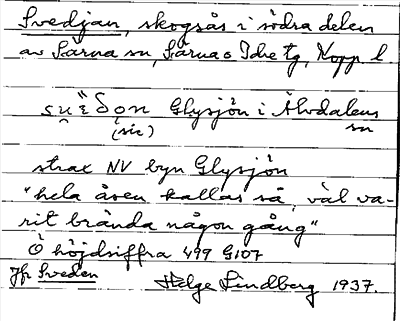 Svedjan, skogsås i södra delen
av Särna sn, Särna o Idre tg, Kopp l
Glysjön i Älvdalens
(sic) sn
strax NV byn Glysjön
"hela åsen kallas så, väl va-
rit brända någon gång"
Ö höjdsiffra 499 G107
Jfr Sveden Helge Lindberg 1937.